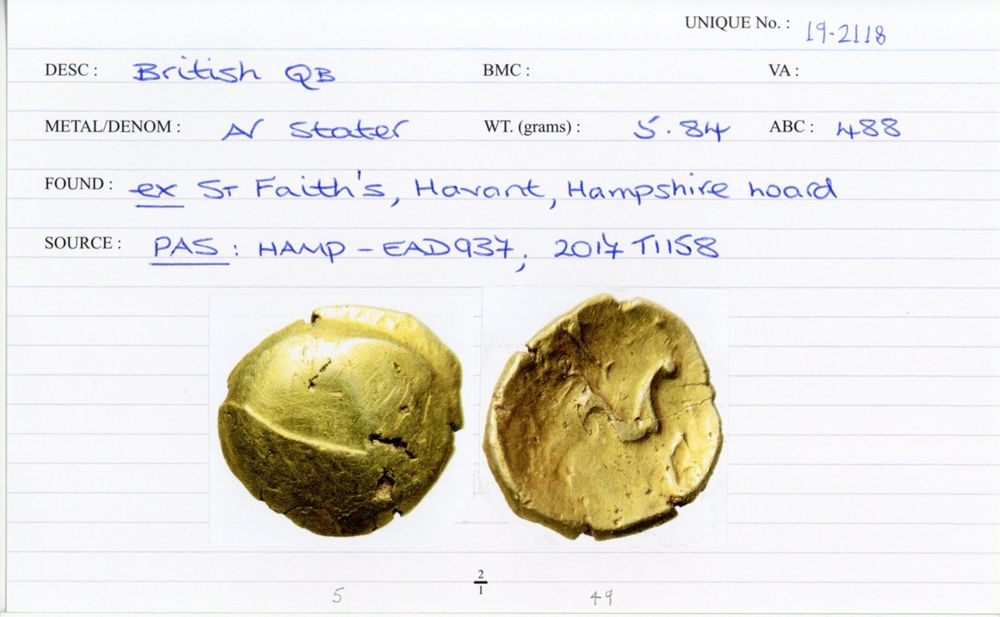 UNIQUE No. : 19-2118
DESC : British QB BMC : VA :
METAL/DENOM : AV Stater WT. (grams) : 5.84 ABC : 488
FOUND : ex St Faith's, Havant, Hampshire hoard
SOURCE : PAS : HAMP - EAD937; 2017 T1158
2
1
5 49